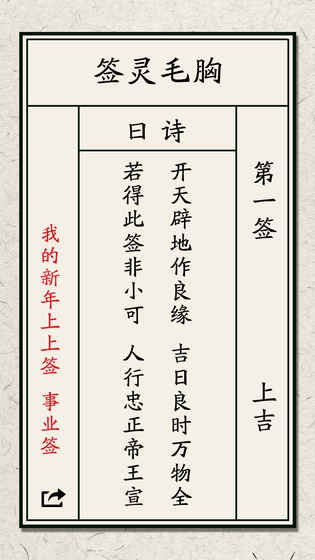 胸毛灵签
诗曰
第一签 上吉
开天辟地作良缘 吉日良时万物全
若得此签非小可 人行忠正帝王宣
我的新年上上签 事业签